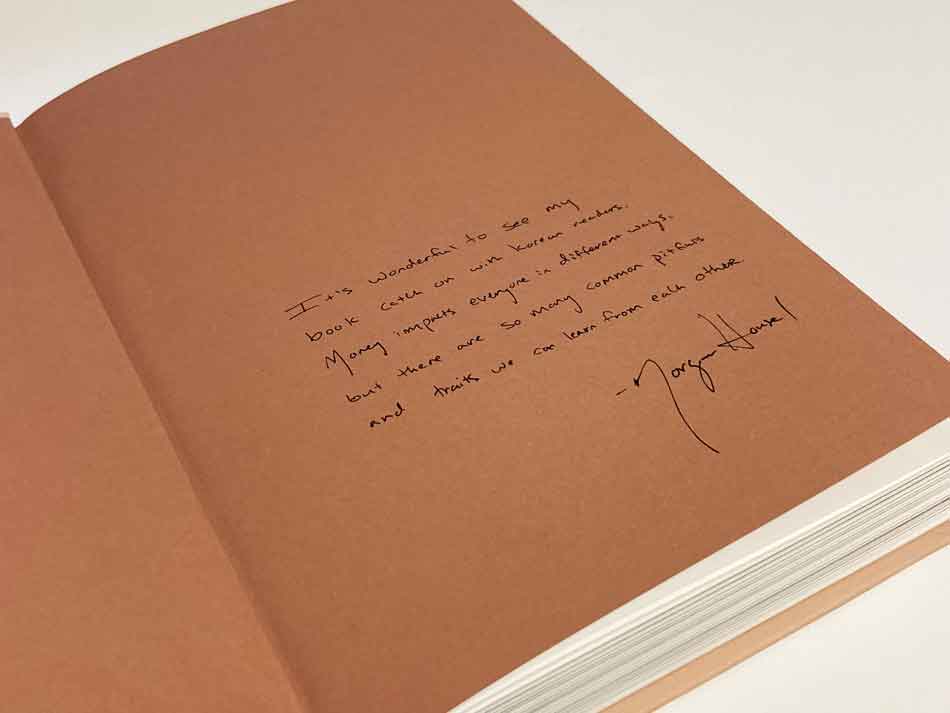 It's wonderful to see my
book catch on with Korean readers.
Money impacts everyone in different ways,
but there are so many common pitfalls
and traits we can learn from each other
- Morgan Housel